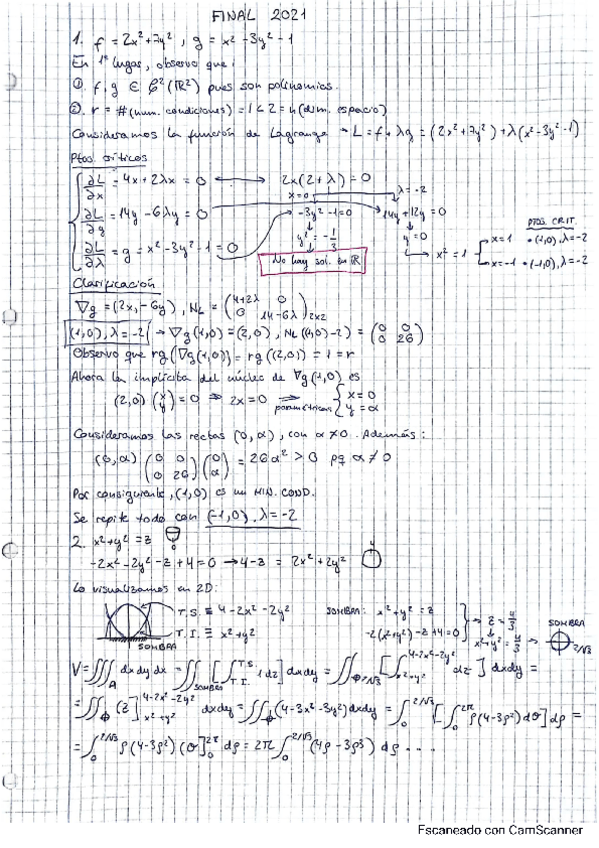 FINAL 2021
1. f = 2x²+7y², g = x²-3y²-1
En 1er lugar, observo que:
①. f,g ∈ C²(ℝ²) pues son polinomios.
②. r = #(num. condiciones) = 1 < 2 = n (dim. espacio)
Consideramos la función de Lagrange → L = f+λg = (2x²+7y²)+λ(x²-3y²-1)
Ptos. críticos
∂L/∂x = 4x+2λx = 0 ↔ 2x(2+λ) = 0
x=0 λ=-2
∂L/∂y = 14y-6λy = 0 -3y²-1=0 14y+12y = 0
y² = -1/3 y=0
∂L/∂λ = g = x²-3y²-1 = 0 No hay sol. en ℝ x² = 1
PTOS. CRIT.
x=1 • (1,0), λ=-2
x=-1 • (-1,0), λ=-2
Clasificación
∇g = (2x,-6y), HL = (4+2λ 0 / 0 14-6λ)2x2
(1,0), λ=-2 → ∇g(1,0) = (2,0), HL((1,0)-2) = (0 0 / 0 26)
Observo que rg(∇g(1,0)) = rg((2,0)) = 1 = r
Ahora la implícita del núcleo de ∇g(1,0) es
(2,0)(x / y) = 0 ⇒ 2x = 0 ⇒ paramétricas {x=0 / y=α
Consideramos las rectas (0,α), con α≠0. Además:
(0,α)(0 0 / 0 26)(0 / α) = 26α² > 0 pq α≠0
Por consiguiente, (1,0) es un MIN. COND.
Se repite todo con (-1,0), λ=-2
2. x²+y² = z
-2x²-2y²-z+4=0 → 4-z = 2x²+2y²
Lo visualizamos en 2D:
T.S. ≡ 4-2x²-2y²
T.I. ≡ x²+y²
SOMBRA
SOMBRA: x²+y² = z
-2(x²+y²)-z+4=0
→ z = 4/3
x²+y² = 4/3 →
SOMBRA
2/√3
V = ∭A dxdydz = ∬SOMBRA [∫T.I.^T.S. 1dz] dxdy = ∬2/√3 [∫x²+y²^4-2x²-2y² dz] dxdy =
= ∬ [z]x²+y²^4-2x²-2y² dxdy = ∬(4-3x²-3y²)dxdy = ∫0^2/√3 [∫0^2π ρ(4-3ρ²)dθ]dρ =
= ∫0^2/√3 ρ(4-3ρ²)[θ]0^2π dρ = 2π ∫0^2/√3 (4ρ-3ρ³) dρ ....
Escaneado con CamScanner